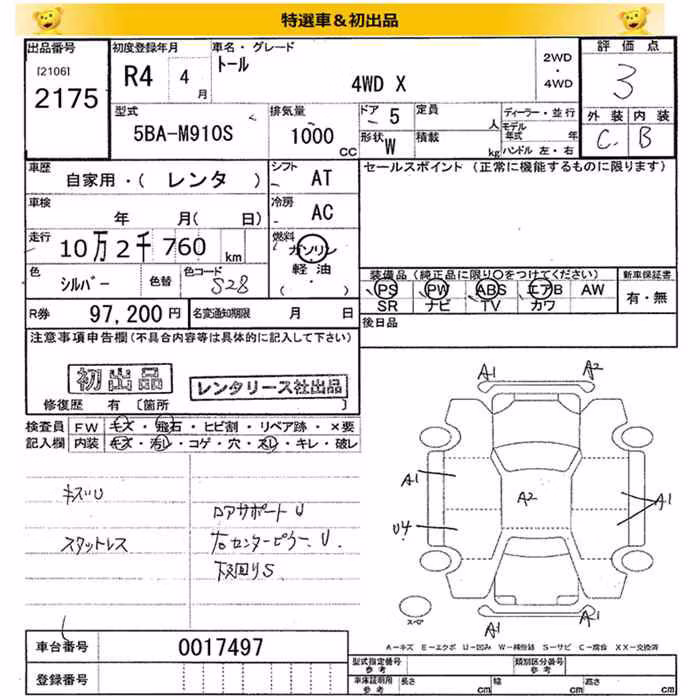 特選車&初出品
出品番号 初度登録年月 車名・グレード 評価点
[2106] R4 4月 トール 2WD・4WD 3
2175 4WD X
型式 排気量 ドア 5 定員 人 ディーラー・並行 外装 内装
5BA-M910S 1000 CC 形状 W 積載 kg モデル年式 年 ハンドル 左・右 C B
車歴 自家用・( レンタ ) シフト AT セールスポイント (正常に機能するものに限ります)
車検 年 月( 日) 冷房 AC
走行 10万2千760 km 燃料 ガソリン
軽油
( ・ )
色 シルバー 色替 色コード S28 装備品 (純正品に限り○をつけてください) 新車保証書
PS PW ABS エアB AW 有・無
SR ナビ TV カワ
R券 97,200円 名変通知期限 月 日 後日品
注意事項申告欄(不具合内容等は具体的に記入して下さい)
初出品 レンタリース社出品
修復歴 有 [箇所 ]
検査員 FW キズ・飛石・ヒビ割・リペア跡・×要
記入欄 内装 キズ・汚レ・コゲ・穴・スレ・キレ・破レ
キズU
スタットレス
ロアサポートU
右センターピラーU.
下回りS
A1 A2
A1 A2 A1
U4
A1 A1
スペア
A-キズ E-エクボ U-凹み W-補修跡 S-サビ C-腐食 XX-交換済
車台番号 0017497
登録番号
型式指定番号 参考 類別区分番号 参考
車庫証明用 参考 長さ cm 幅 cm 高さ cm